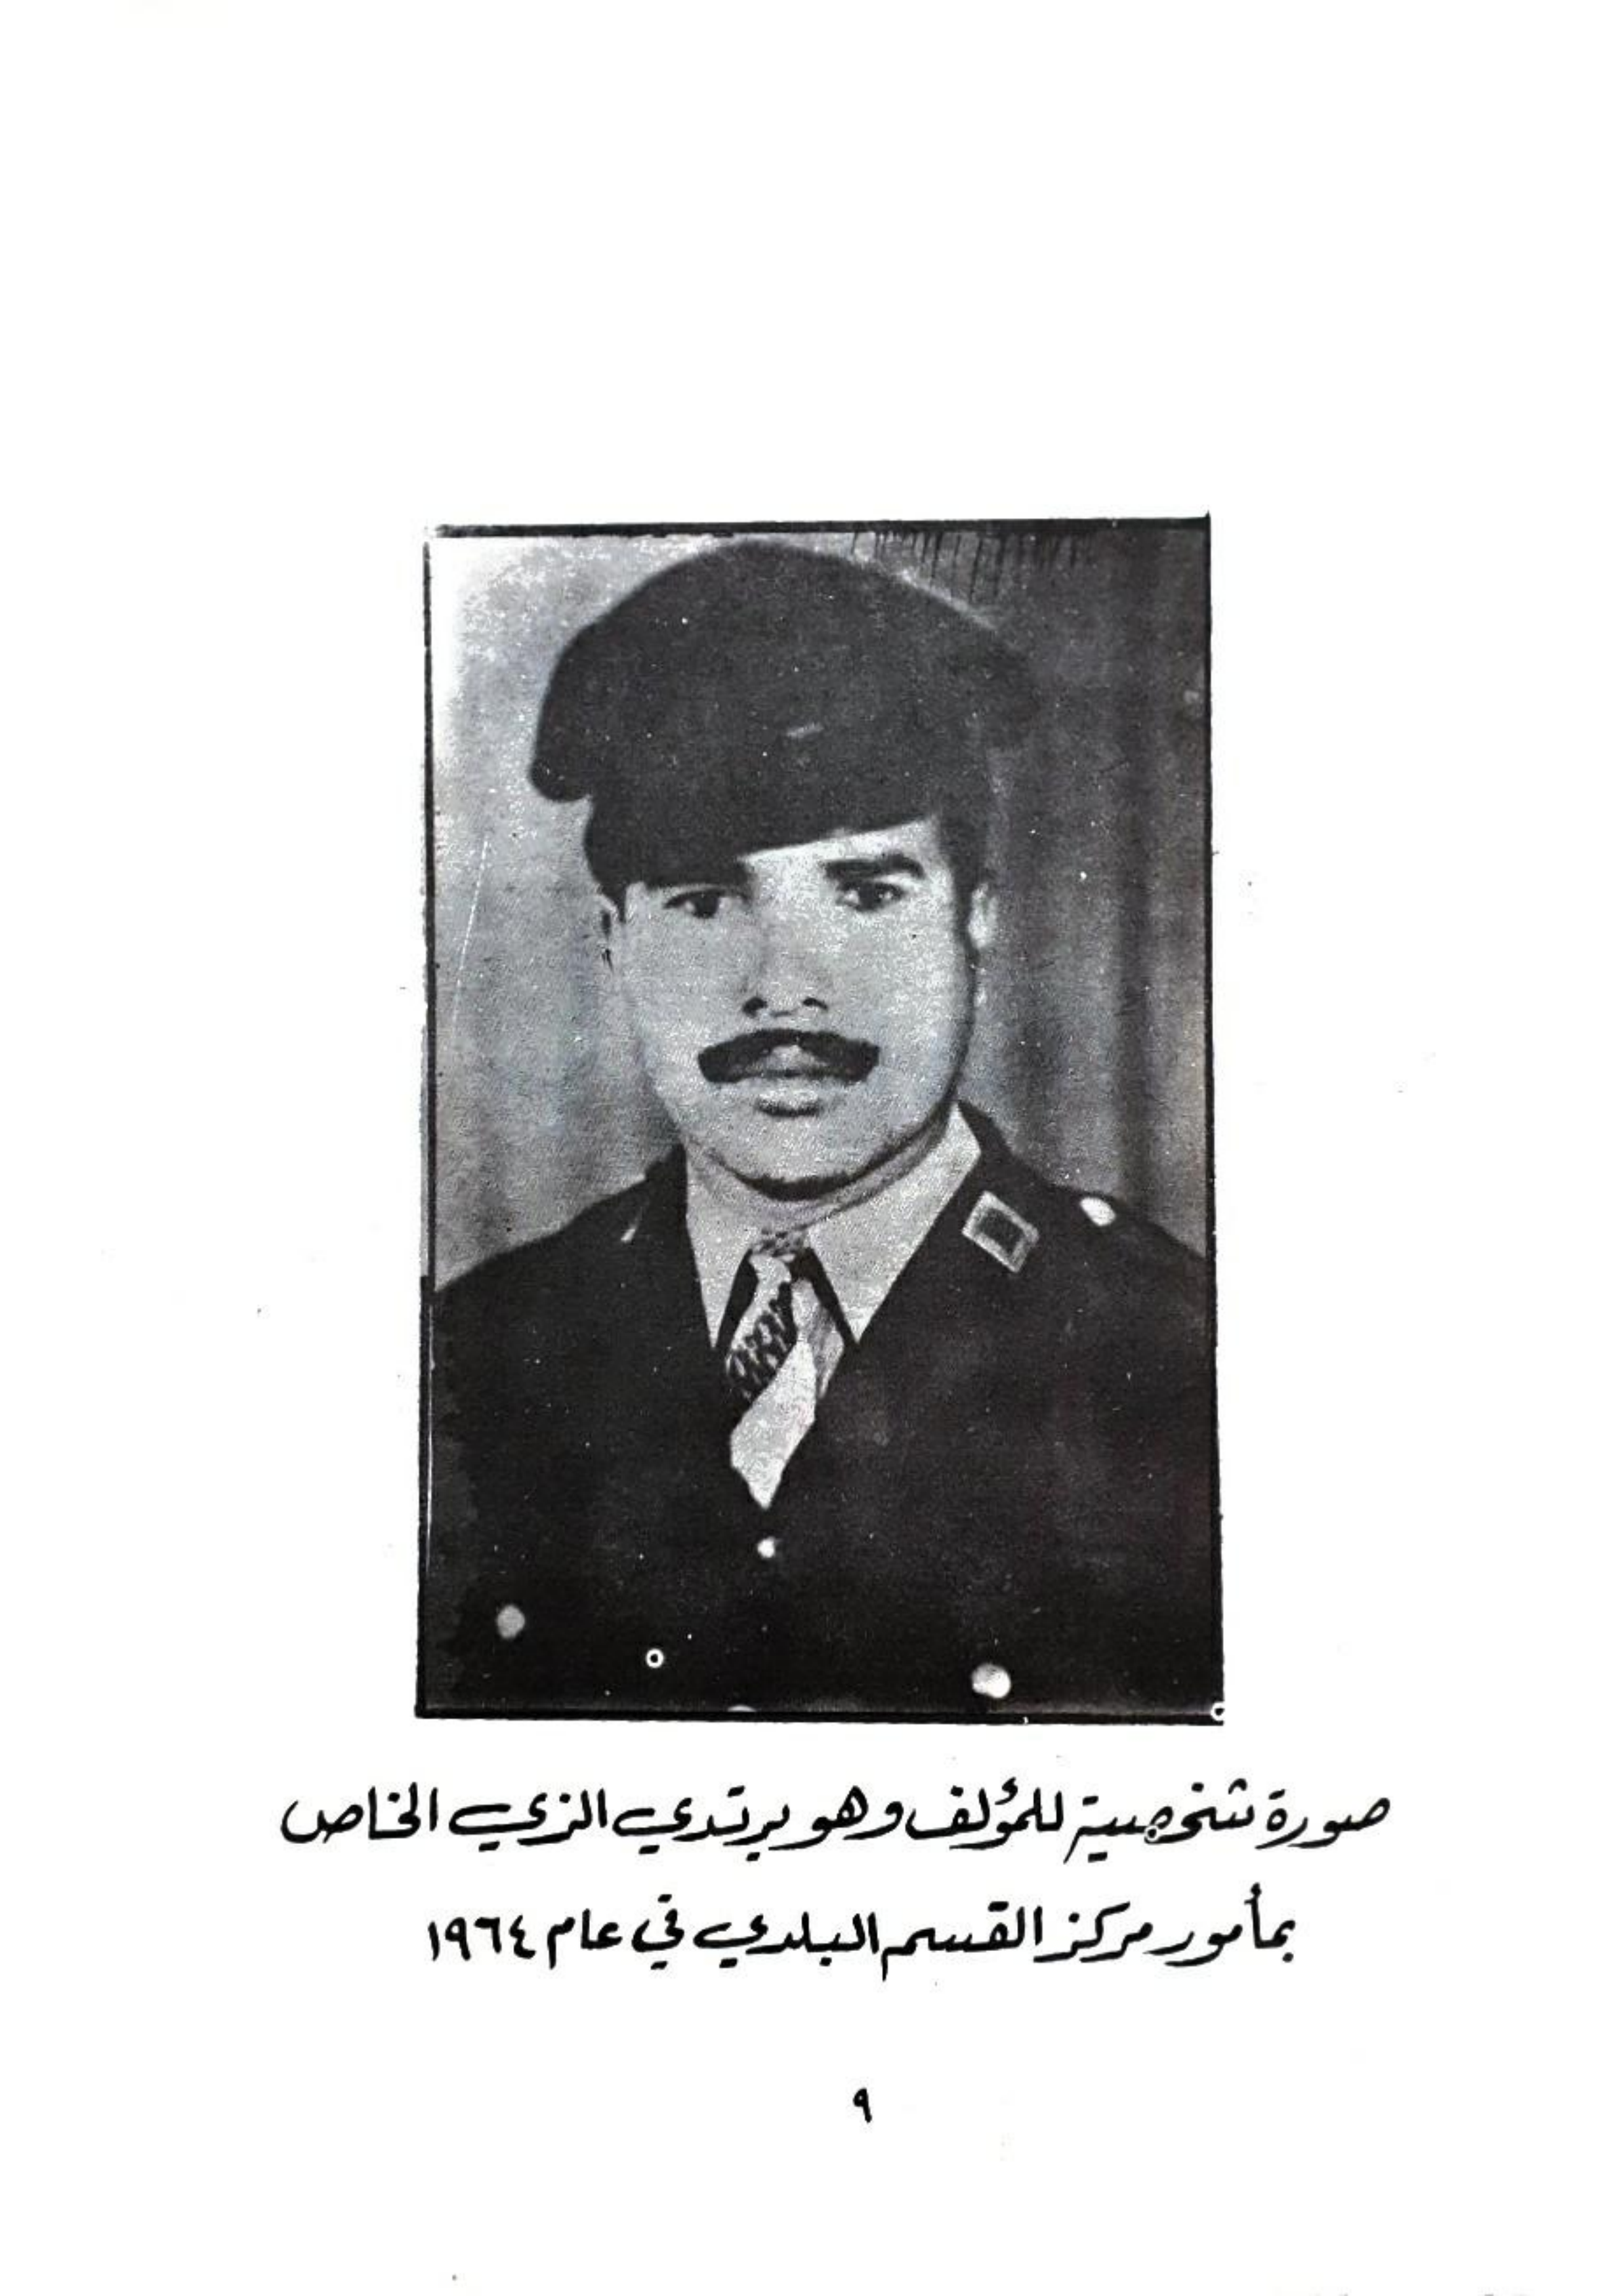 صورة شخصية للمؤلف وهو يرتدي الزي الخاص
بمأمور مركز القسم البلدي في عام ١٩٦٤
٩